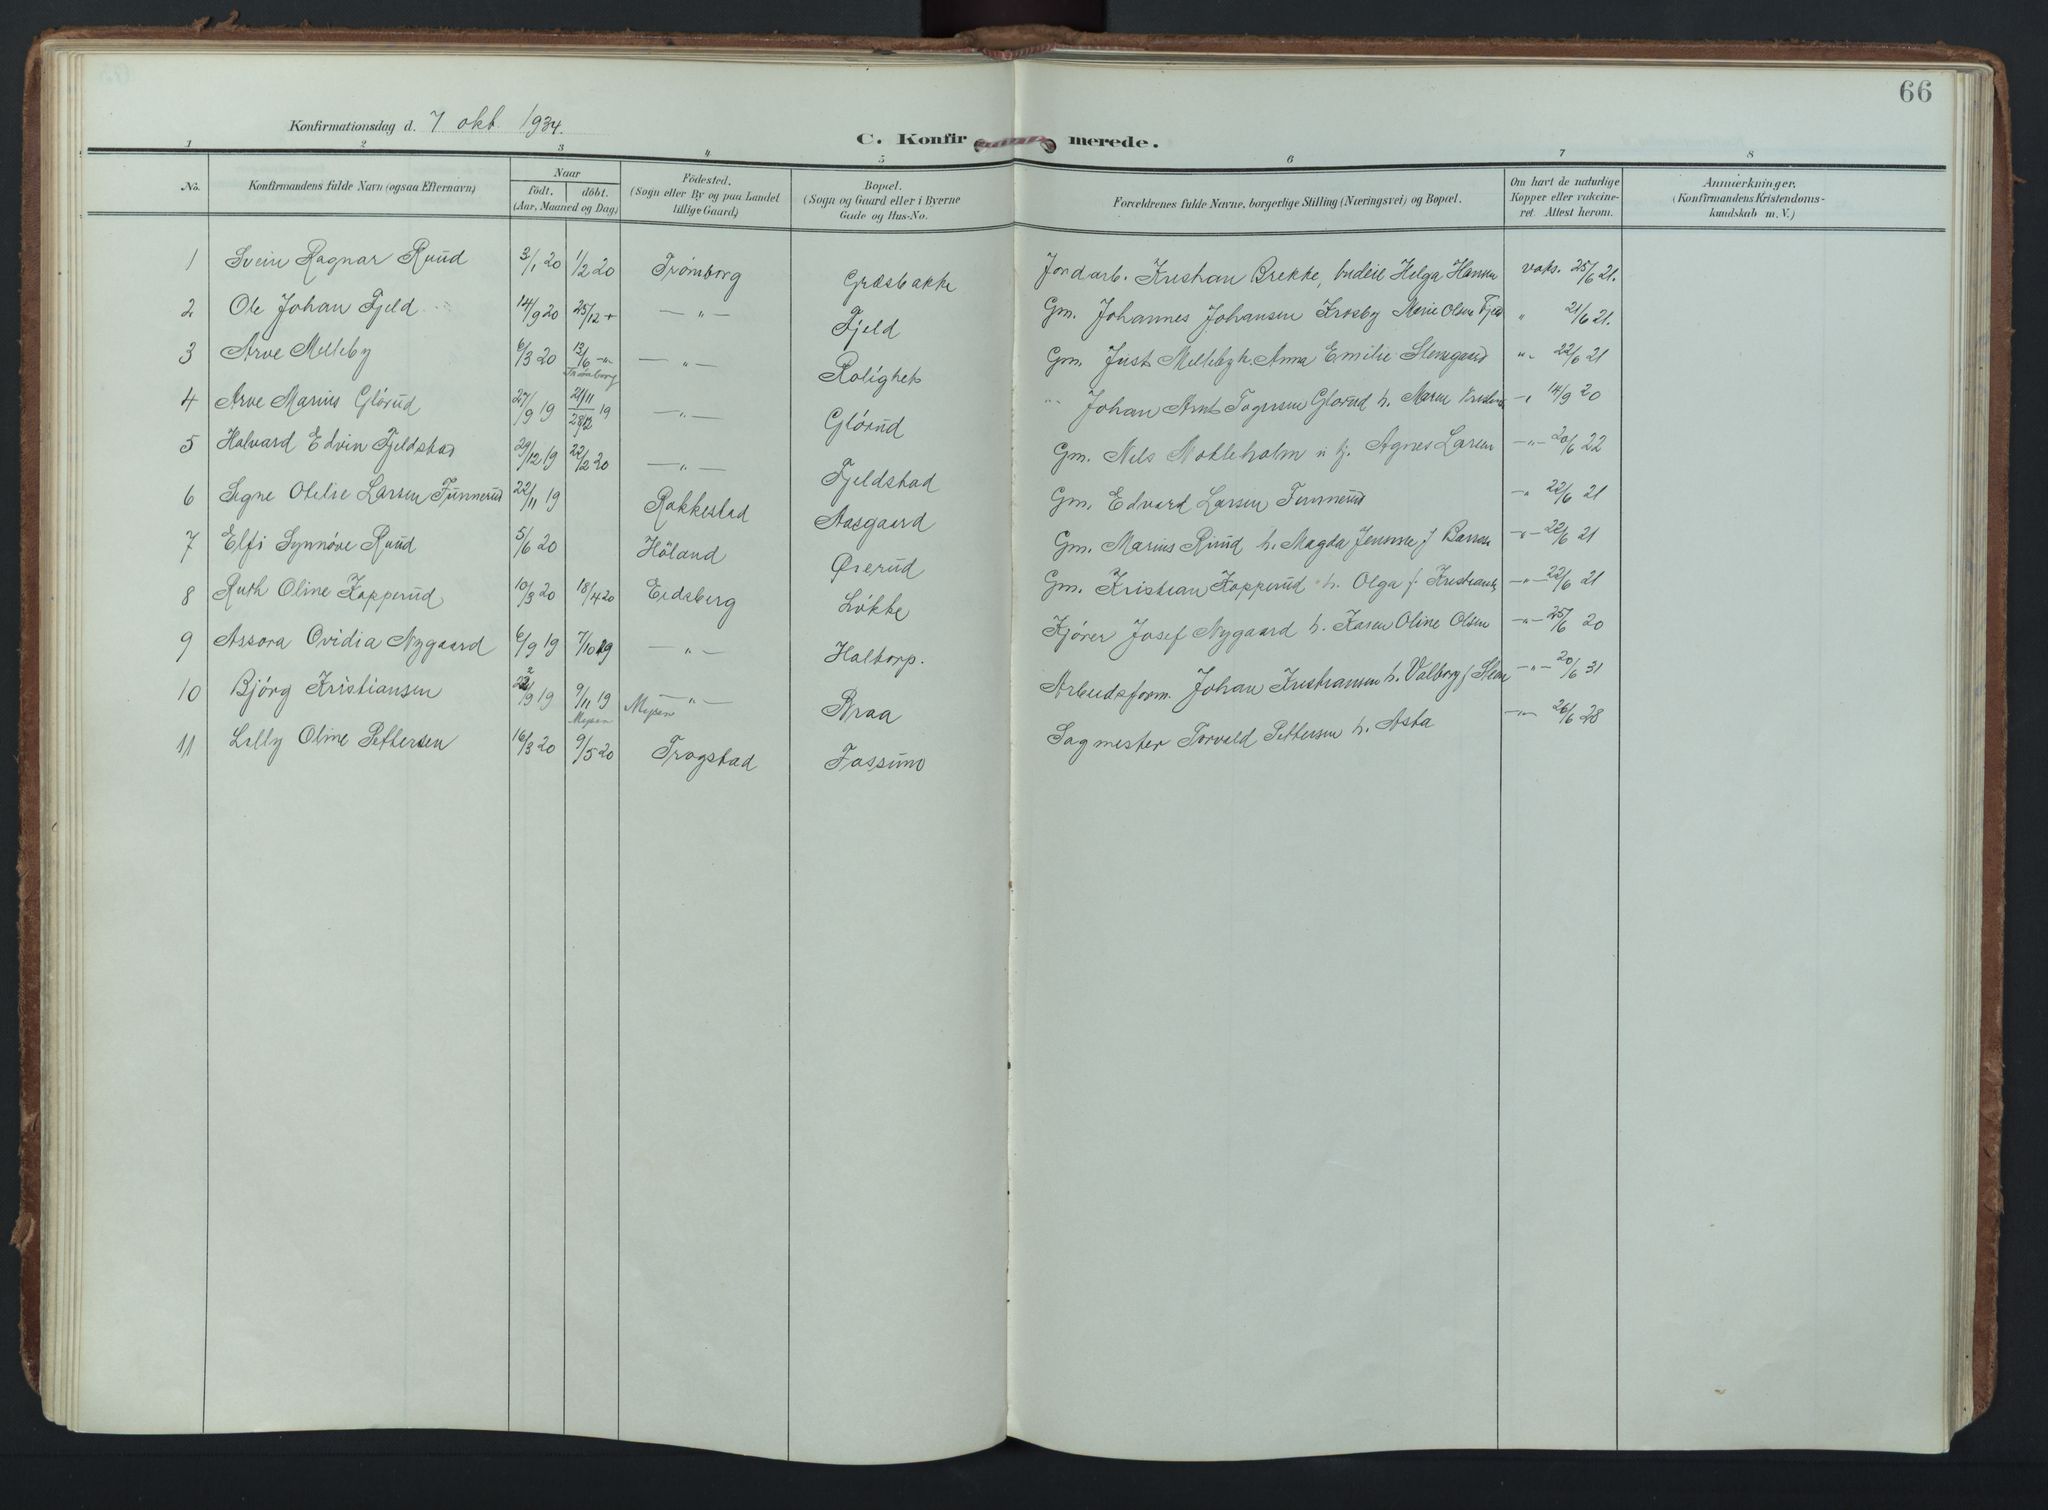 66
Konfirmationsdag d. 7 okt. 1934.
C. Konfirmerede.
1 2 3 4 5 6 7 8
No. Konfirmandens fulde Navn (ogsaa Efternavn) Naar födt. döbt. (Aar, Maaned og Dag) Födested. (Sogn eller By og paa Landet tillige Gaard) Bopæl. (Sogn og Gaard eller i Byerne Gade og Hus-No. Forældrenes fulde Navne, borgerlige Stilling (Næringsvei) og Bopæl. Om havt de naturlige Kopper eller vakcineret. Attest herom. Anmærkninger. (Konfirmandens Kristendomskundskab m. V.)
1 Svein Ragnar Ruud 3/1 20 1/2 20 Trømborg Græsbakke Jordarb. Kristian Brekke, budeie Helga Hansen vaks. 25/6 21.
2 Ole Johan Fjeld 14/9 20 25/12 + — " — Fjeld Gm. Johannes Johansen Krosby Marie Olsen Fjeld " 21/6 21.
3 Arve Melleby 6/3 20 13/6 -"- Trømborg — " — Rolighet Gm. Just Melleby h. Anna Emilie Stensgaard " 22/6 21
4 Arve Marius Glørud 27/9 19 21/11 28/12 19 — " — Glørud " Johan Arnt Glørud h. Maren -" 14/9 20
5 Halvard Edvin Fjeldstad 29/12 19 22/2 20 — " — Fjeldstad Gm. Nels Agnes Larsen -"- 20/6 22
6 Signe Otelie Larsen Tunnerud 22/11 19 Rakkestad Aasgaard Gm. Edvard Larsen Tunnerud -" 22/6 21
7 Elfi Synnøve Ruud 5/6 20 Höland Øierud Gm. Marius Ruud h. Magda -"- 22/6 21
8 Ruth Oline Kopperud 10/3 20 18/4 20 Eidsberg Løkke Gm. Kristian Kopperud h. Olga f. Kristians -"- 22/6 21
9 Assora Ovidia Nygaard 6/9 19 7/10 19 — " — Haltorp. Kjører Josef Nygaard h. Karen Oline Olsen -"- 25/6 20
10 Bjørg Kristiansen 22/9 19 9/11 19 Mysen Mysen — " — Braa Arbeidsform. Johan Kristiansen h. Valborg f. -"- 20/6 31
11 Lilly Oline Pettersen 16/3 20 9/5 20 Trøgstad Fossum Sagmester Torvald Pettersen h. Asta -"- 26/6 28